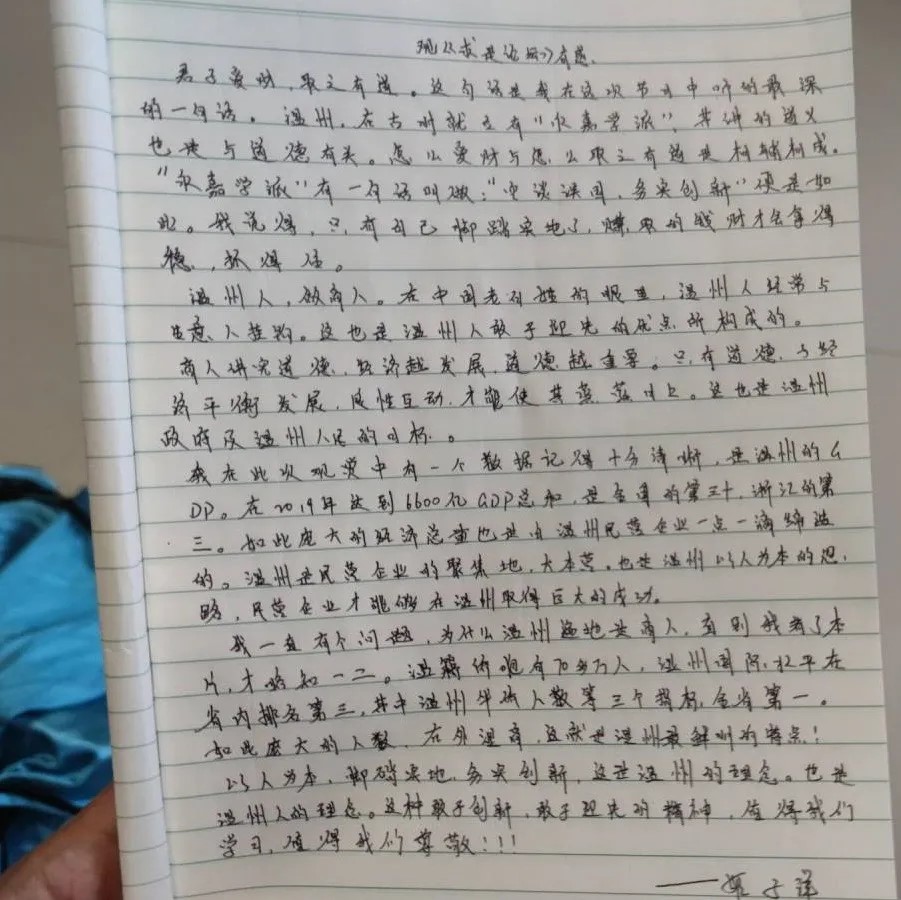 观《求是论坛》有感.
君子爱财,取之有道。这句话是我在这次节目中听的最深
的一句话。温州,在古时就立有"永嘉学派",其神的道义
也是与道德有关。怎么爱财与怎么取之有道是相辅相成。
"永嘉学派"有一句话叫做:"空谈误国,务实创新"便是如
此。我觉得,只有自己脚踏实地了,赚取的钱财才会拿得
稳,抓得住。
温州人,做商人。在中国老百姓的眼里,温州人经常与
生意人挂钩。这也是温州人敢于迎先的优点所构成的。
商人讲究道德,经济越发展,道德越重要。只有道德与经
济平衡发展,良性互动,才能使其蒸蒸日上。这也是温州
政府及温州人民的目标。
我在此次观赏中有一个数据记得十分清晰,是温州的G
DP。在2019年达到6600亿GDP总和,是全国的第三十,浙江的第
三。如此庞大的经济总量也是由温州民营企业一点一滴缔造
的。温州是民营企业的聚集地,大本营。也是温州以人为本的思
路,民营企业才能够在温州取得巨大的成功。
我一直有个问题,为什么温州遍地是商人,直到我看了本
片,才略知一二。温籍侨胞有70多万人,温州国际水平在
省内排名第三,其中温州华侨人数等三个指标,全省第一。
如此庞大的人数,在外温商,这就是温州最鲜明的特点!
以人为本,脚踏实地,务实创新,这是温州的理念。也是
温州人的理念。这种敢于创新,敢于迎先的精神,值得我们
学习,值得我们尊敬!!!